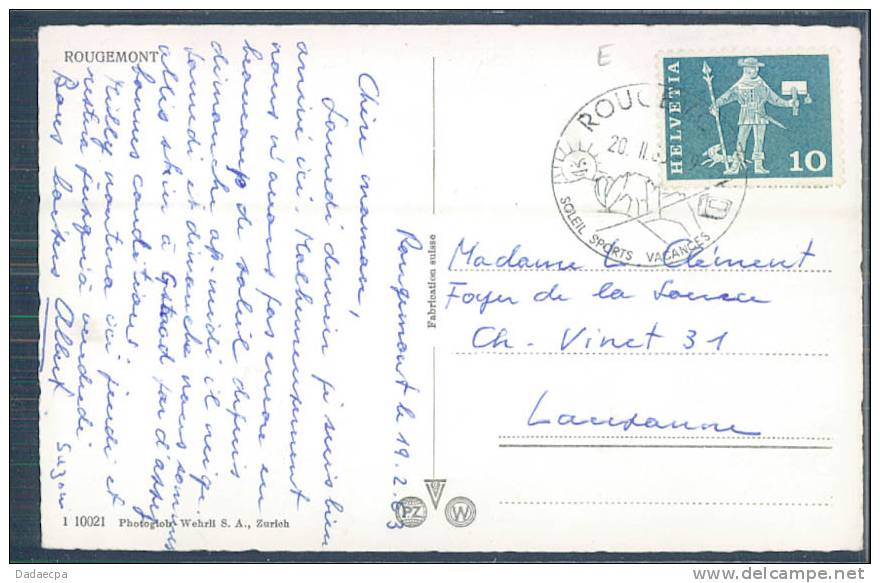 ROUGEMONT
Rougemont le 19.2.63
Chère maman,
Samedi dernier je suis bien
arrivé ici. Malheureusement
nous n'avons pas encore eu
beaucoup de soleil depuis
dimanche ap. midi il neige.
Samedi et dimanche nous sommes
allés skier à Gstaad par d'assez
bonnes conditions.
Milly viendra ici jeudi et
restera jusqu'à vendredi
Bons baisers Albert
Suzon
1 10021 Photoglob-Wehrli S. A., Zurich
Fabrication suisse
PZ W
E
ROUGEM
20. II. 63
SOLEIL SPORTS VACANCES
HELVETIA
10
Madame L. Clément
Foyer de la Source
Ch. Vinet 31
Lausanne
Dadaecpa